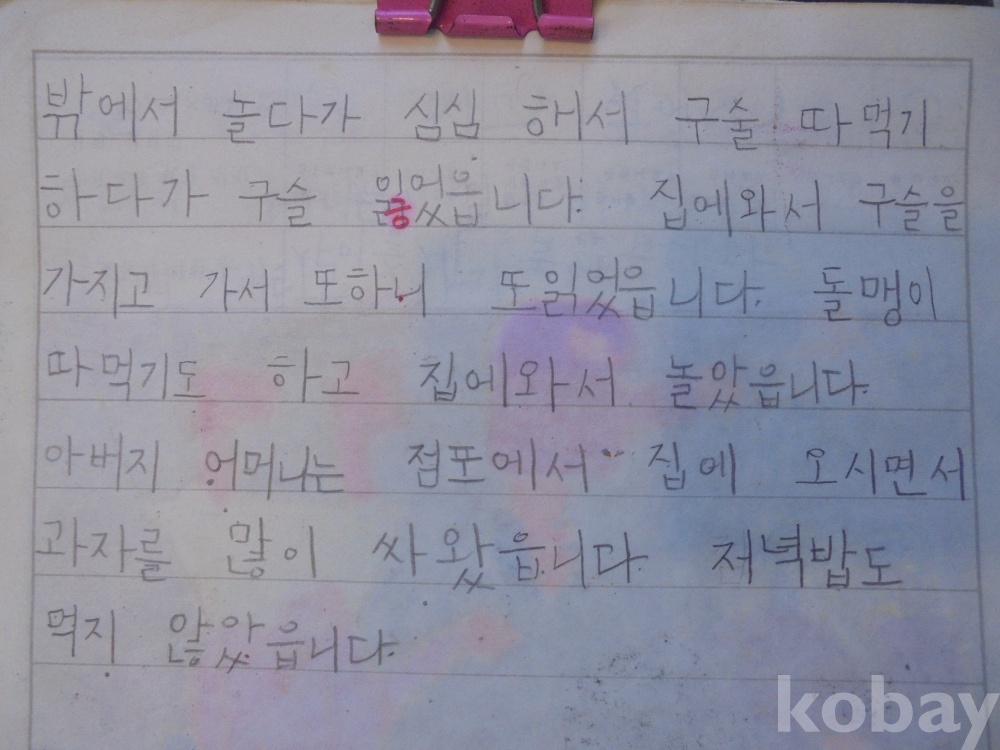 밖에서 놀다가 심심 해서 구술 따 먹기
하다가 구슬 읽었읍니다. 집에와서 구슬을
가지고 가서 또하니 또읽었읍니다. 돌맹이
따먹기도 하고 집에와서 놀았읍니다.
아버지 어머니는 점포에서 집에 오시면서
과자를 많이 싸 왔읍니다. 저녁밥도
먹지 않았읍니다.
kobay